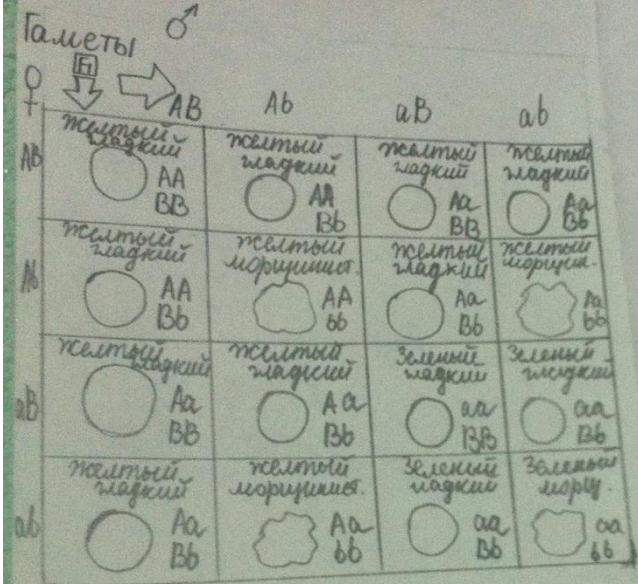 Гаметы ♂
F1
♀
AB Ab aB ab
AB
Желтый
гладкий
AA
BB
Желтый
гладкий
AA
Bb
Желтый
гладкий
Aa
BB
Желтый
гладкий
Aa
Bb
Ab
Желтый
гладкий
AA
Bb
Желтый
морщинист.
AA
bb
Желтый
гладкий
Aa
Bb
Желтый
морщин.
Aa
bb
aB
Желтый
гладкий
Aa
BB
Желтый
гладкий
Aa
Bb
Зеленый
гладкий
aa
BB
Зеленый
гладкий
aa
Bb
ab
Желтый
гладкий
Aa
Bb
Желтый
морщинист.
Aa
bb
Зеленый
гладкий
aa
Bb
Зеленый
морщ.
aa
bb